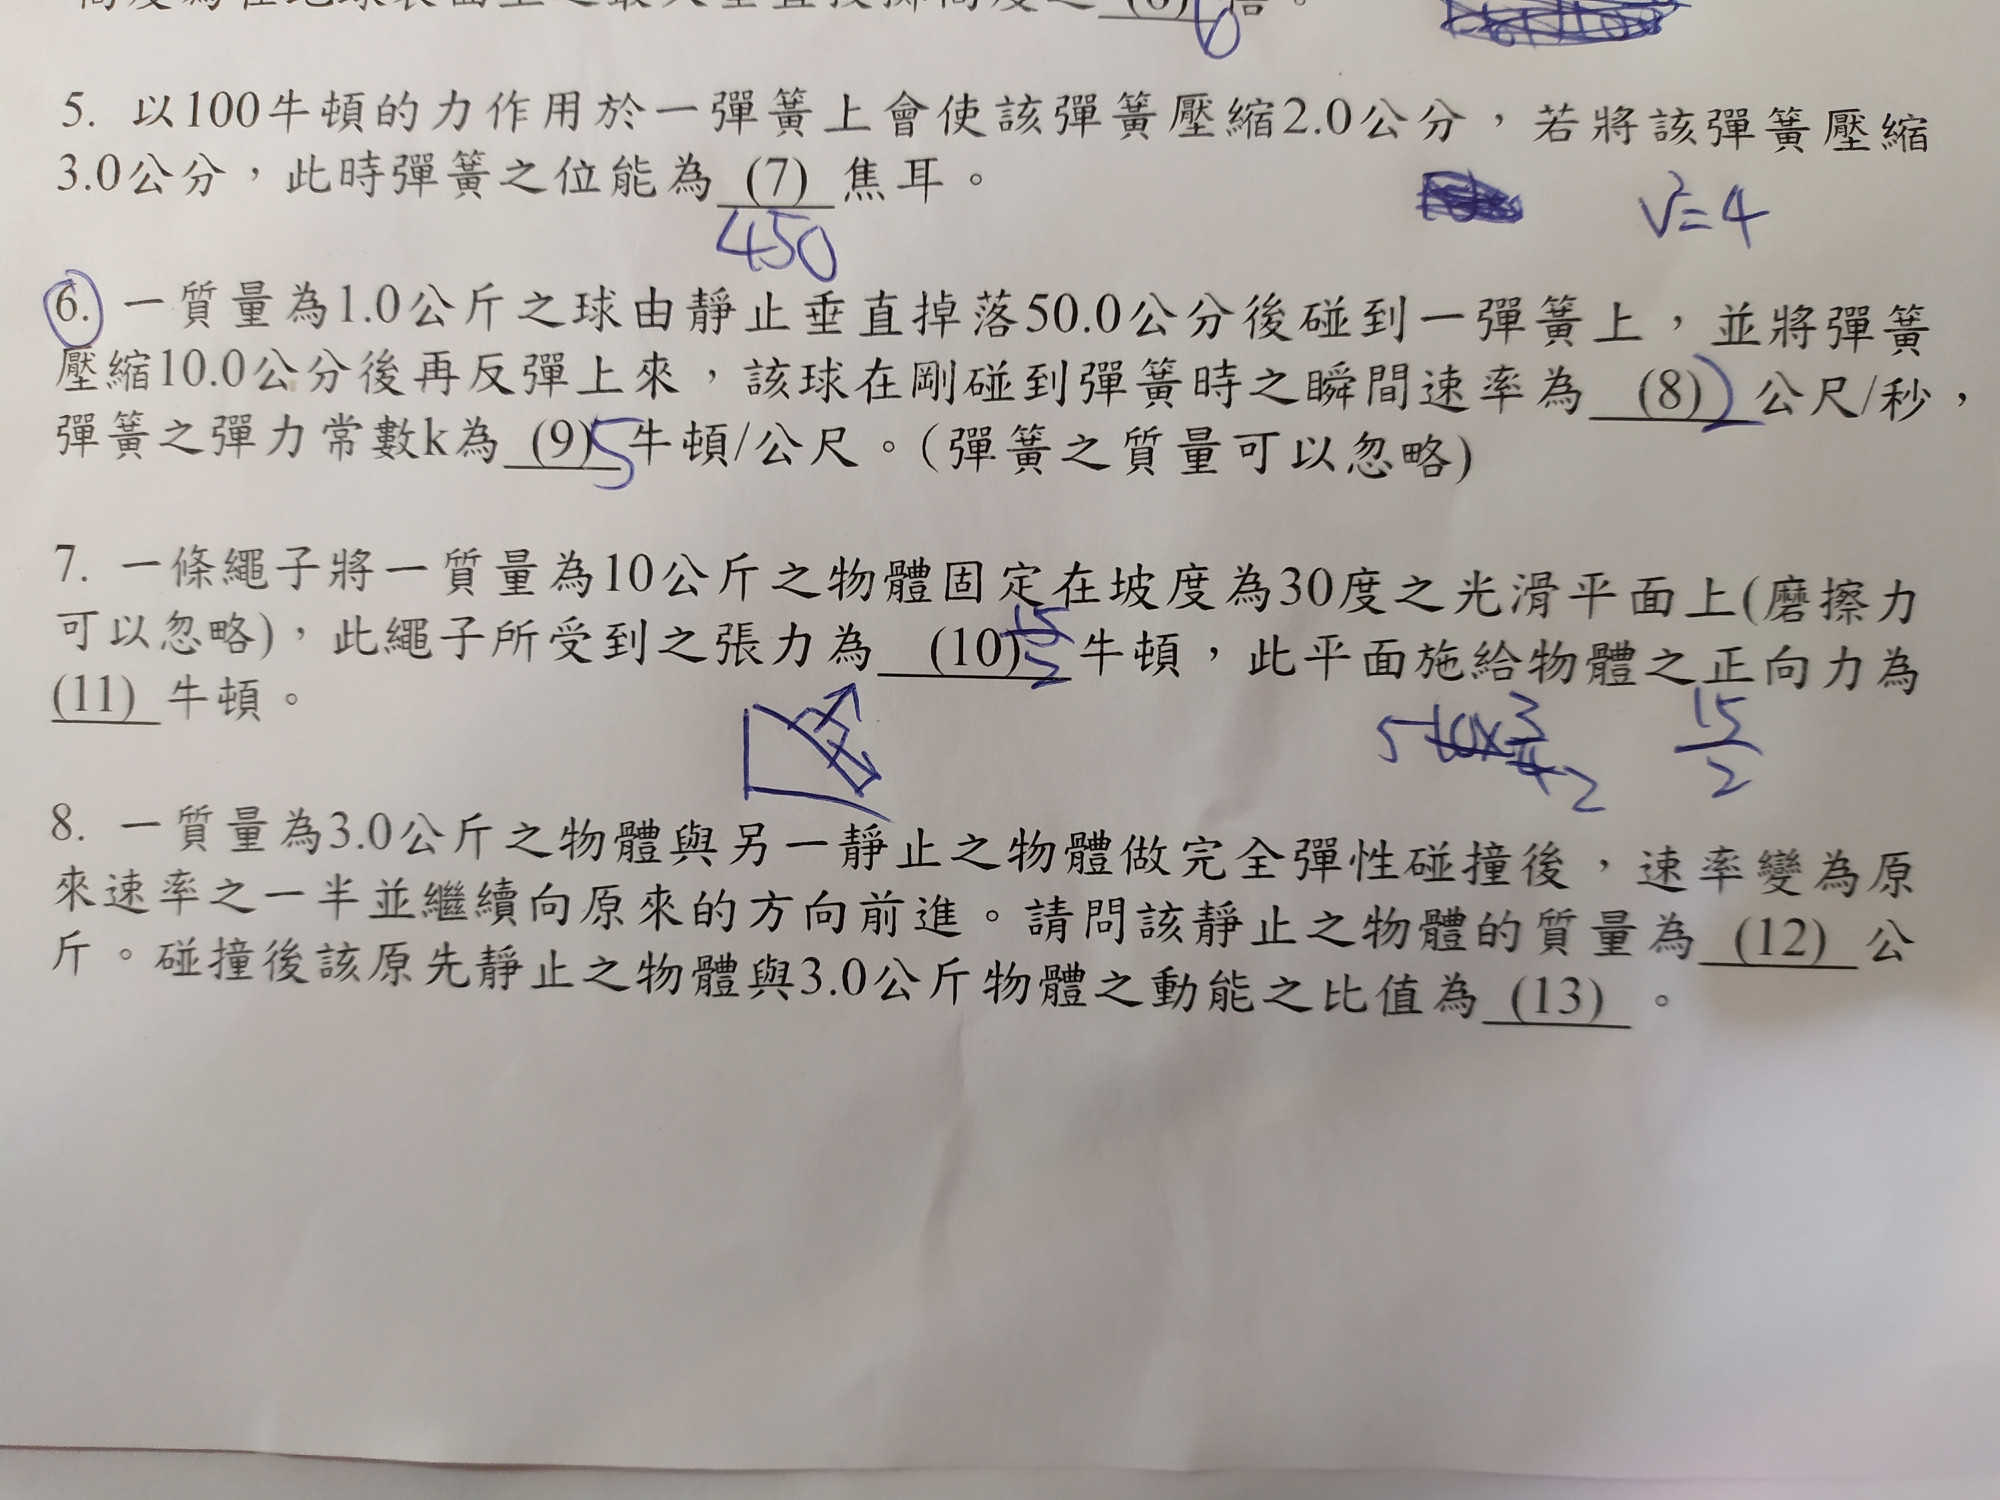 (6) 6 倍。
5. 以100牛頓的力作用於一彈簧上會使該彈簧壓縮2.0公分，若將該彈簧壓縮
3.0公分，此時彈簧之位能為 (7) 焦耳。
450
V²=4
6. 一質量為1.0公斤之球由靜止垂直掉落50.0公分後碰到一彈簧上，並將彈簧
壓縮10.0公分後再反彈上來，該球在剛碰到彈簧時之瞬間速率為 (8) 2 公尺/秒，
彈簧之彈力常數k為 (9) 5 牛頓/公尺。(彈簧之質量可以忽略)
7. 一條繩子將一質量為10公斤之物體固定在坡度為30度之光滑平面上(磨擦力
可以忽略)，此繩子所受到之張力為 (10) 15/2 牛頓，此平面施給物體之正向力為
(11) 牛頓。
15/2
8. 一質量為3.0公斤之物體與另一靜止之物體做完全彈性碰撞後，速率變為原
來速率之一半並繼續向原來的方向前進。請問該靜止之物體的質量為 (12) 公
斤。碰撞後該原先靜止之物體與3.0公斤物體之動能之比值為 (13) 。